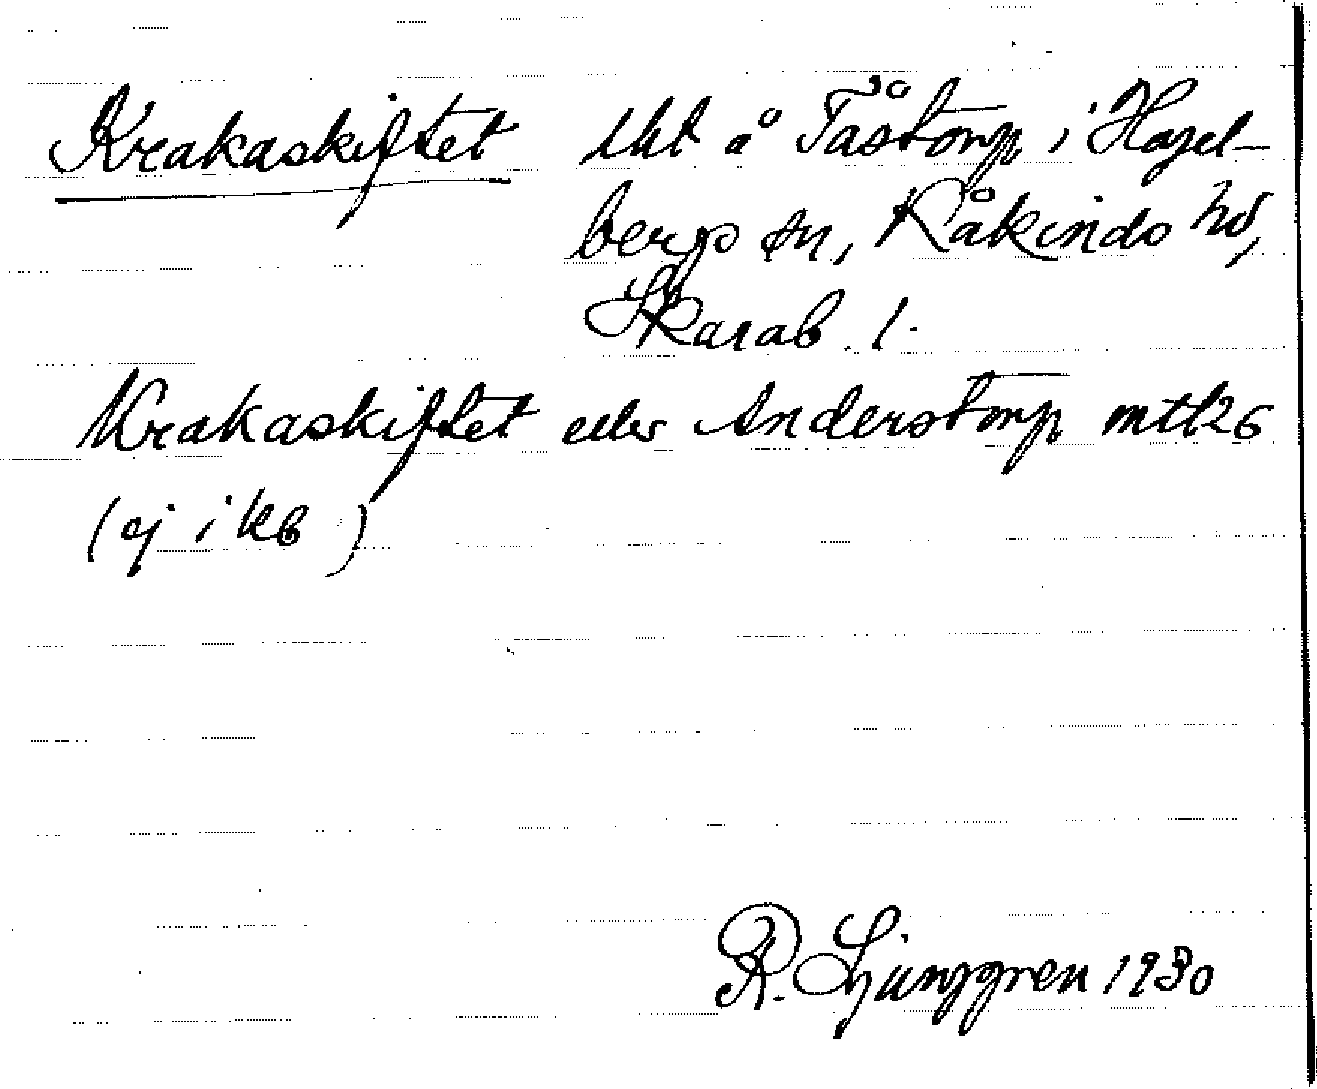 Krakaskiftet tkt å Tåstorp i Hagel-
bergs sn, Kåkinds hd,
Skarab. l.
Krakaskiftet eller Anderstorp mtl 26
(ej i kb)
R. Ljunggren 1930